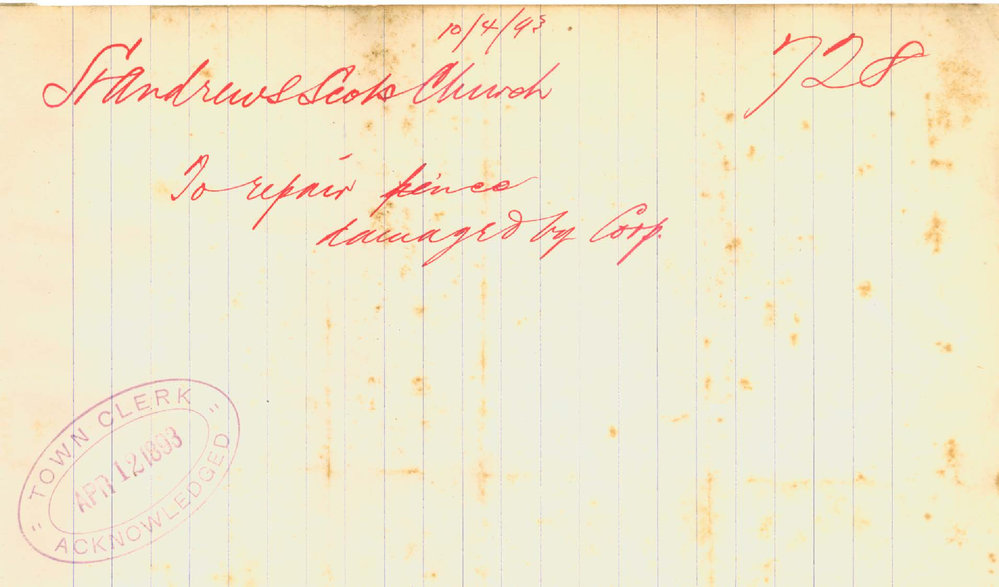 10/4/93
728
St Andrews Scots Church
To repair fence
damaged by Corp.
" TOWN CLERK "
APR 12 1893
ACKNOWLEDGED